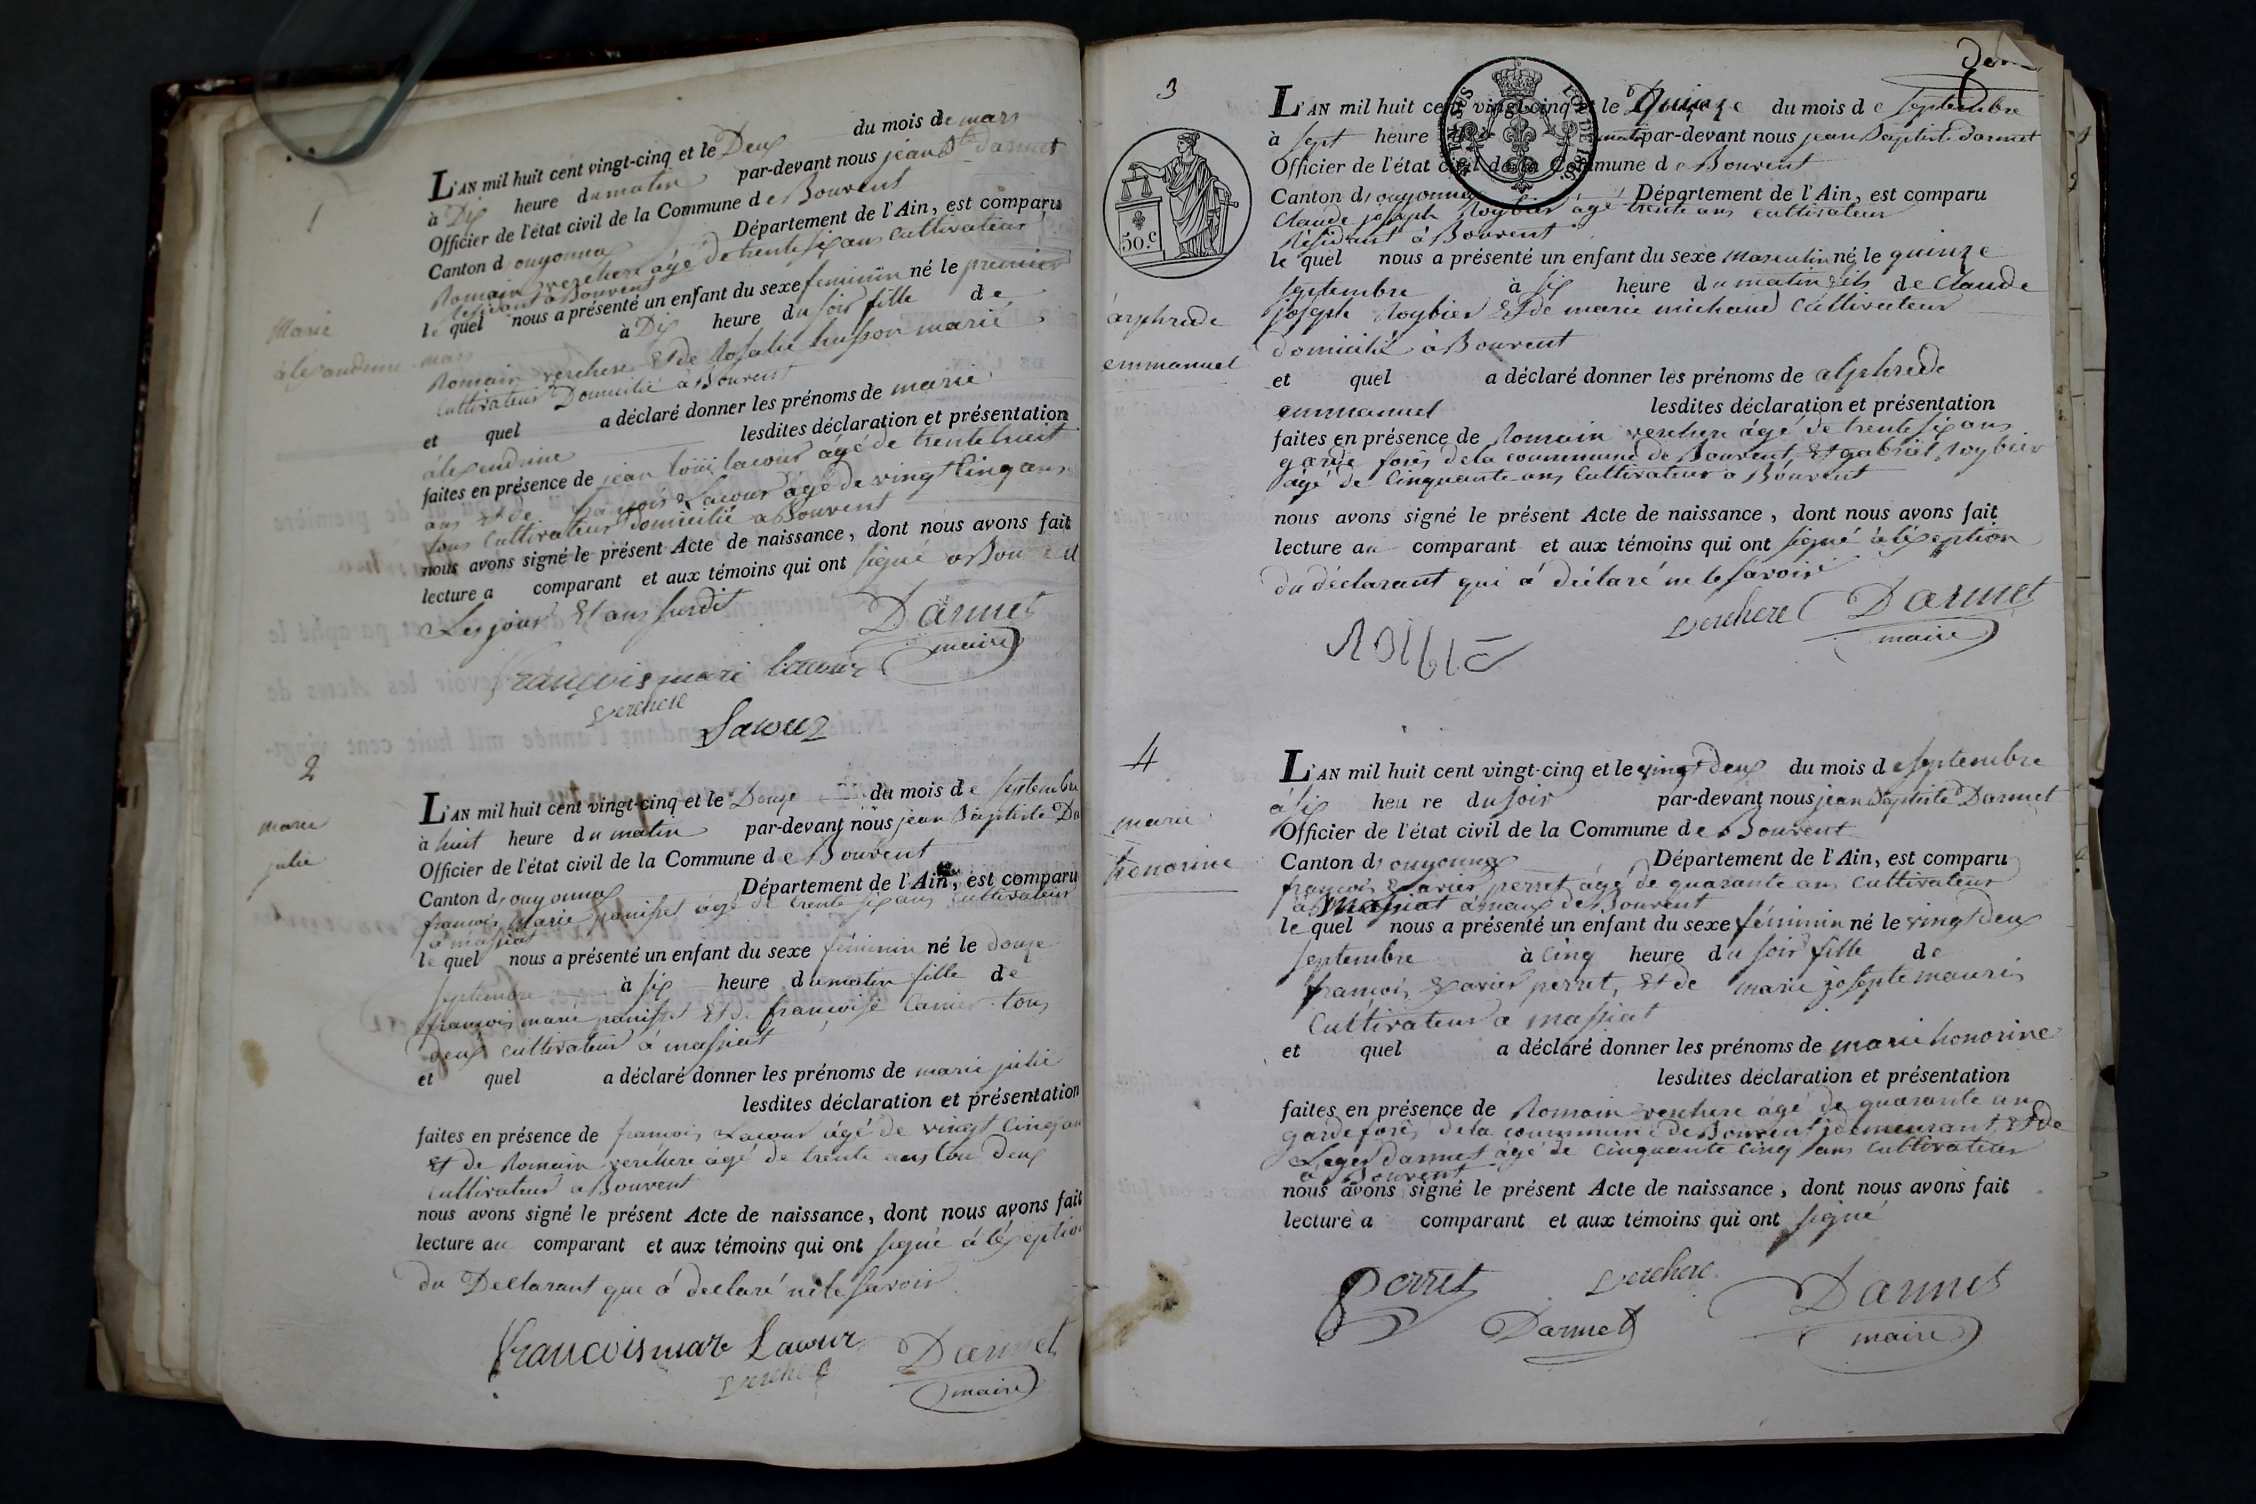 1
Marie
alexandrine
L'AN mil huit cent vingt-cinq et le Deux du mois de mars
à Dix heure du matin par-devant nous jean Bte Darmet
Officier de l'état civil de la Commune de Bouvent
Canton d'ouyonnax Département de l'Ain, est comparu
Romain verchere âgé de trente six ans cultivateur
Résidant à Bouvent
le quel nous a présenté un enfant du sexe feminin né le premier
mars à Dix heure du soir fille de
Romain verchere Et de Rosalie husson marie
cultivateur Domicilié à Bouvent
et quel a déclaré donner les prénoms de marie
alexendrine lesdites déclaration et présentation
faites en présence de jean loui lacour âgé de trente huit
ans Et de françois Lacour âgé de vingt cinq ans
tous cultivateur domicilié a Bouvent
nous avons signé le présent Acte de naissance, dont nous avons fait
lecture a comparant et aux témoins qui ont signé a Bouvent
Les jour Et ans susdit Darmet
maire
françois marie lacour
verchere
Lacour
2
marie
julie
L'AN mil huit cent vingt-cinq et le Douze du mois de septembre
à huit heure du matin par-devant nous jean Baptiste Da
Officier de l'état civil de la Commune de Bouvent
Canton d'ouyonnax Département de l'Ain, est comparu
françois Marie panisset âgé de trente six ans cultivateur
a massiat
le quel nous a présenté un enfant du sexe féminin né le douze
septembre à six heure du matin fille de
françois marie panisset Et de françoise Carrier tous
deux cultivateur à massiat
et quel a déclaré donner les prénoms de marie julie
lesdites déclaration et présentation
faites en présence de françois Lacour âgé de vingt cinq an
Et de Romain verchere âgé de trente ans tou deux
cultivateur a Bouvent
nous avons signé le présent Acte de naissance, dont nous avons fait
lecture au comparant et aux témoins qui ont signé à léxception
du Declarant que à declaré ne le savoir
francois mare Lacour Darmet
verchere maire
3
alphrede
emmanuel
50.c
L'AN mil huit cent vingt-cinq et le Quinze du mois de septembre
à sept heure du matin par-devant nous jean Baptiste Darmet
Officier de l'état civil de la Commune de Bouvent
Canton d'ouyonnax Département de l'Ain, est comparu
Claude joseph Roybier âgé trente ans cultivateur
Résidant à Bouvent
le quel nous a présenté un enfant du sexe masculin né le quinze
septembre à six heure du matin fils de Claude
joseph Roybier Et de marie michaud Cultivateur
domicilié à Bouvent
et quel a déclaré donner les prénoms de alphrede
emmanuel lesdites déclaration et présentation
faites en présence de Romain verchere âgé de trente six ans
garde forês de la commune de Bouvent Et gabriel Roybier
âgé de Cinquante ans Cultivateur a Bouvent
nous avons signé le présent Acte de naissance, dont nous avons fait
lecture au comparant et aux témoins qui ont signé à léxception
du déclarant qui à déclaré ne le savoir
verchere Darmet
maire
4
marie
honorine
L'AN mil huit cent vingt-cinq et le vingt deux du mois de septembre
à six heure du soir par-devant nous jean Baptiste Darmet
Officier de l'état civil de la Commune de Bouvent
Canton d'ouyonnax Département de l'Ain, est comparu
françois Exavier perret âgé de quarante ans cultivateur
à massiat de Bouvent
le quel nous a présenté un enfant du sexe féminin né le vingt deux
septembre à Cinq heure du soir fille de
françois Exavier perret, Et de marie josepte mauris
Cultivateur a massiat
et quel a déclaré donner les prénoms de marie honorine
lesdites déclaration et présentation
faites en présence de Romain verchere âgé de quarante an
garde forês de la commune de Bouvent y demeurant, Et de
Leger darmet âgé de Cinquante Cinq ans Cultivateur
a Bouvent
nous avons signé le présent Acte de naissance, dont nous avons fait
lecture a comparant et aux témoins qui ont signé
Perret verchere Darmet
Darmet maire